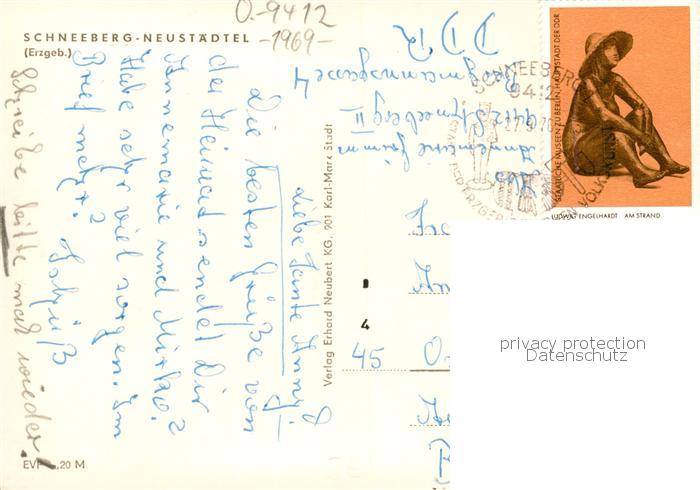 O.-9412
-1969-
SCHNEEBERG-NEUSTÄDTEL
(Erzgeb.)
Liebe Tante Anny!
Die besten Grüße von
der Heimat sendet Dir
Annemarie und Mirko.
Habe sehr viel Sorgen. Im
Brief mehr?
Tschüß
Schreibe bitte mal wieder!
EVP ,20 M
Verlag Erhard Neubert KG, 901 Karl-Marx-Stadt
4
Abs.
Annemarie
9412 Schneeberg II
Bergmannsgasse 4
DDR
SCHNEEBERG
9412
STAATLICHE MUSEEN ZU BERLIN, HAUPTSTADT DER DDR
LUDWIG ENGELHARDT AM STRAND
45 O-
privacy protection
Datenschutz